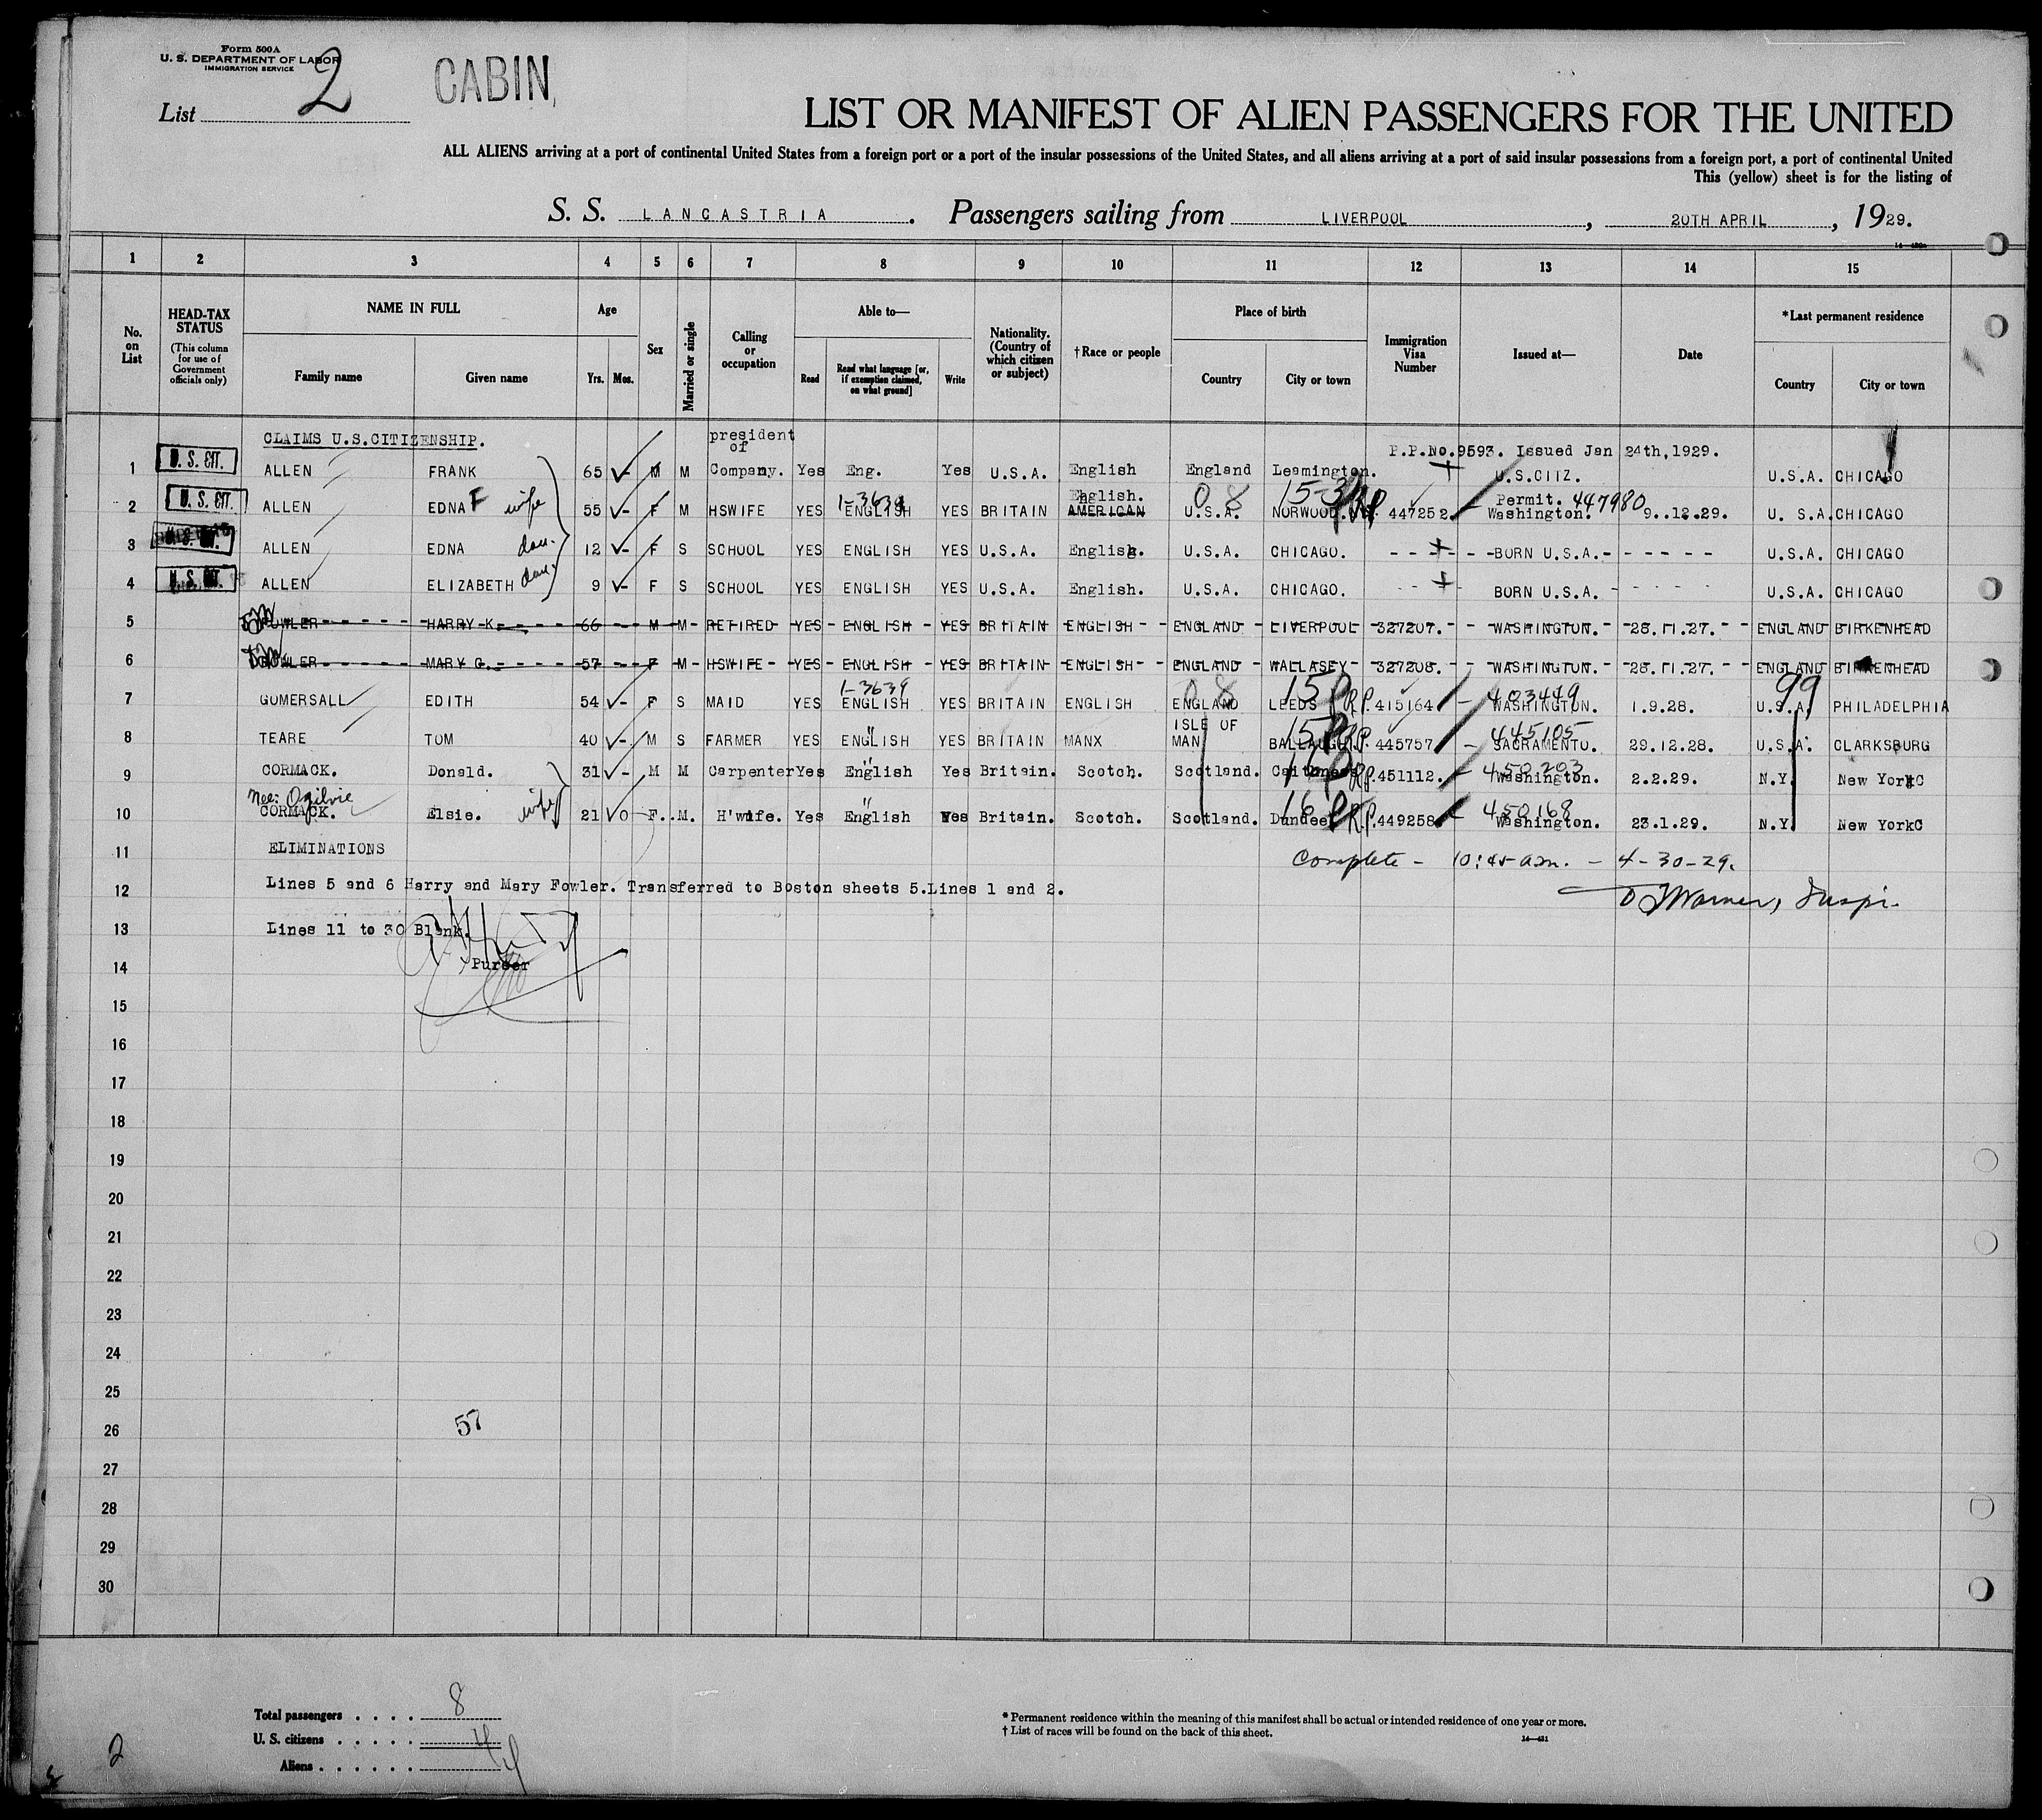 Form 500A
U. S. DEPARTMENT OF LABOR
IMMIGRATION SERVICE
List 2
CABIN,
LIST OR MANIFEST OF ALIEN PASSENGERS FOR THE UNITED
ALL ALIENS arriving at a port of continental United States from a foreign port or a port of the insular possessions of the United States, and all aliens arriving at a port of said insular possessions from a foreign port, a port of continental United
This (yellow) sheet is for the listing of
S. S. LANCASTRIA. Passengers sailing from LIVERPOOL, 20TH APRIL, 1929.
1 2 3 4 5 6 7 8 9 10 11 12 13 14 15
No. on List
HEAD-TAX STATUS (This column for use of Government officials only)
NAME IN FULL
Family name Given name
Age
Yrs. Mos.
Sex
Married or single
Calling or occupation
Able to—
Read
Read what language [or, if exemption claimed, on what ground]
Write
Nationality. (Country of which citizen or subject)
†Race or people
Place of birth
Country City or town
Immigration Visa Number
Issued at—
Date
*Last permanent residence
Country City or town
CLAIMS U.S.CITIZENSHIP. president of P.P.No.9593. Issued Jan 24th,1929.
1 U. S. CIT. ALLEN FRANK 65 M M Company. Yes Eng. Yes U.S.A. English England Leamington. U.S.CITZ. U.S.A. CHICAGO
1-3639 English. 08 Permit. 447980
2 U. S. CIT. ALLEN EDNA F wife 55 F M HSWIFE YES ENGLISH YES BRITAIN AMERICAN U.S.A. NORWOOD. 447252. Washington. 9..12.29. U. S.A. CHICAGO
3 ALLEN EDNA dau. 12 F S SCHOOL YES ENGLISH YES U.S.A. English. U.S.A. CHICAGO. - - -BORN U.S.A.- - - - - - U.S.A. CHICAGO
4 U. S. CIT. ALLEN ELIZABETH dau. 9 F S SCHOOL YES ENGLISH YES U.S.A. English. U.S.A. CHICAGO. - - BORN U.S.A. - - - - - U.S.A. CHICAGO
5 FOWLER HARRY K. 66 M M RETIRED YES ENGLISH YES BRITAIN ENGLISH ENGLAND LIVERPOOL 327207. WASHINGTON. 28.11.27. ENGLAND BIRKENHEAD
6 FOWLER MARY G. 57 F M HSWIFE YES ENGLISH YES BRITAIN ENGLISH ENGLAND WALLASEY 327208. WASHINGTON. 28.11.27. ENGLAND BIRKENHEAD
1-3639 08 403449 99
7 GOMERSALL EDITH 54 F S MAID YES ENGLISH YES BRITAIN ENGLISH ENGLAND LEEDS R.P. 415164 WASHINGTON. 1.9.28. U.S.A. PHILADELPHIA
ISLE OF 445105
8 TEARE TOM 40 M S FARMER YES ENGLISH YES BRITAIN MANX MAN BALLAUGH 445757 SACRAMENTO. 29.12.28. U.S.A. CLARKSBURG
450203
9 CORMACK. Donald. 31 M M Carpenter Yes English Yes Britain. Scotch. Scotland. R.P. 451112. Washington. 2.2.29. N.Y. New York C
nee: Ogilvie 450168
10 CORMACK. Elsie. wife 21 0 F. M. H'wife. Yes English Yes Britain. Scotch. Scotland. Dundee R.P. 449258. Washington. 23.1.29. N.Y. New York C
11 ELIMINATIONS Complete - 10:45 am. - 4-30-29.
12 Lines 5 and 6 Harry and Mary Fowler. Transferred to Boston sheets 5.Lines 1 and 2. Warner, Inspr.
13 Lines 11 to 30 Blank.
14 Purser
15
16
17
18
19
20
21
22
23
24
25
26 57
27
28
29
30
Total passengers . . . . 8
U. S. citizens . . . . . 4
Aliens . . . . . . 4
* Permanent residence within the meaning of this manifest shall be actual or intended residence of one year or more.
† List of races will be found on the back of this sheet.
14—431
2